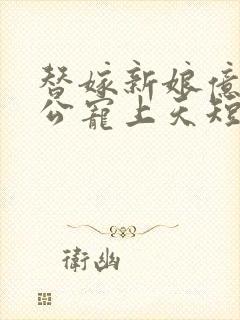 替嫁新娘億
公寵上天短
衛幽